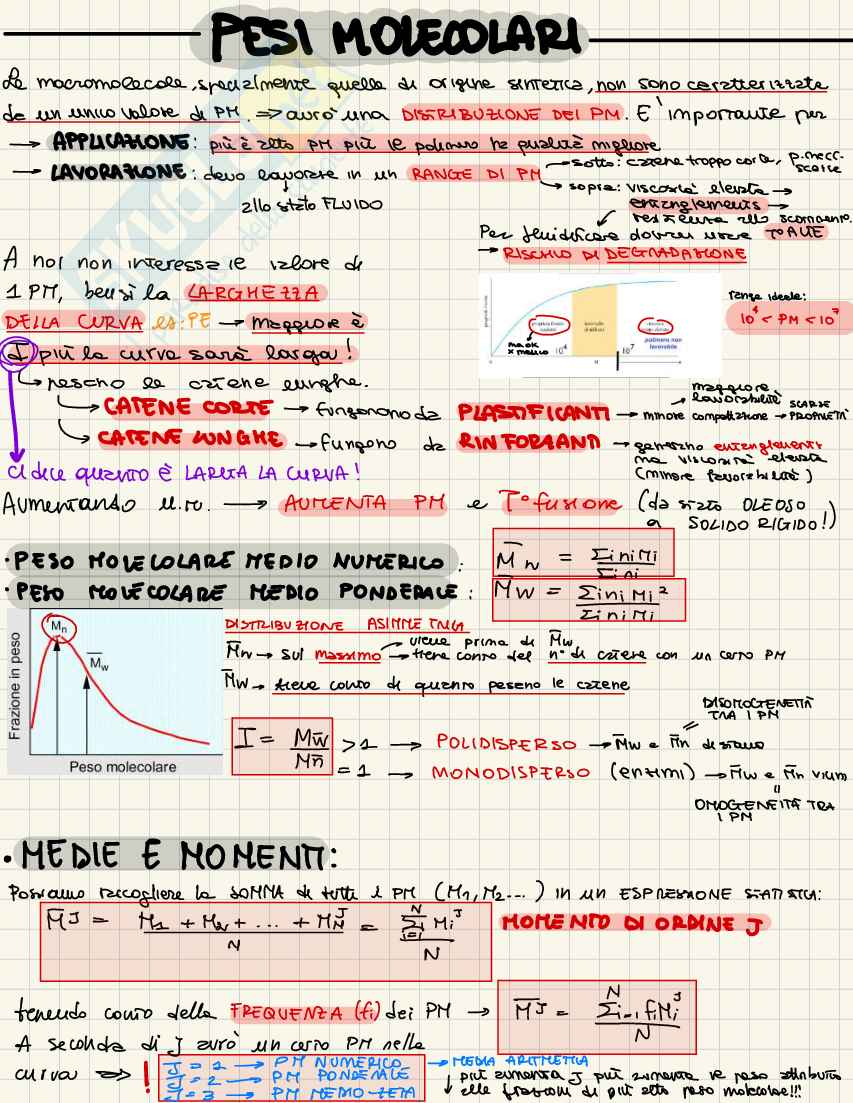 PESI MOLECOLARI
Le macromolecole, specialmente quelle di origine sintetica, non sono caratterizzate
da un unico valore di PM. => avrò una DISTRIBUZIONE DEI PM. E' importante per
→ APPLICAZIONE: più è alto PM più il polimero ha qualità migliore
→ LAVORAZIONE: devo lavorare in un RANGE DI PM → sotto: catene troppo corte, p. mecc. scarse
→ sopra: viscosità elevata →
allo stato FLUIDO
entanglements →
resistenza allo scorrimento.
Per fluidificare dovrei usare T° ALTE
→ RISCHIO DI DEGRADAZIONE
A noi non interessa il valore di
1 PM, bensì la LARGHEZZA
DELLA CURVA es: PE → maggiore è
I più la curva sarà larga!
range ideale:
10⁴ < PM < 10⁷
10⁴
10⁷
polimero non
lavorabile
→ pesano le catene lunghe.
→ CATENE CORTE → fungono da PLASTIFICANTI → maggiore lavorabilità
minore compattazione → SCARSE PROPRIETÀ
→ CATENE LUNGHE → fungono da RINFORZANTI → generano entanglement
ma viscosità elevata
(minore lavorabilità)
ci dice quanto è LARGA LA CURVA!
Aumentando u.m. → AUMENTA PM e T° fusione (da stato OLEOSO
a SOLIDO RIGIDO!)
· PESO MOLECOLARE MEDIO NUMERICO: M̄n = Σi ni Mi / Σi ni
· PESO MOLECOLARE MEDIO PONDERALE: M̄w = Σi ni Mi² / Σi ni Mi
Frazione in peso
M̄n
M̄w
Peso molecolare
DISTRIBUZIONE ASIMMETRICA
M̄n → sul massimo → viene prima di M̄w
→ tiene conto del n° di catene con un certo PM
M̄w → tiene conto di quanto pesano le catene
DISOMOGENEITÀ
TRA I PM
I = M̄w / M̄n > 1 → POLIDISPERSO → M̄w e M̄n distano
= 1 → MONODISPERSO (enzimi) → M̄w e M̄n vicini
OMOGENEITÀ TRA
I PM
· MEDIE E MOMENTI:
Possiamo raccogliere la SOMMA di tutti i PM (M1, M2...) IN UN ESPRESSIONE STATISTICA:
M̄ᴶ = M1 + M2 + ... + MNᴶ / N = Σᵢ₌₁ᴺ Miᴶ / N MOMENTO DI ORDINE J
tenendo conto della FREQUENZA (fi) dei PM → M̄ᴶ = Σi=1ᴺ fi Miᴶ / N
A seconda di J avrò un certo PM nella
curva => ! J = 1 → PM NUMERICO → MEDIA ARITMETICA
J = 2 → PM PONDERALE
J = 3 → PM MEDIO-ZETA
↓ più aumenta J più aumenta il peso attribuito
alle frazioni di più alto peso molecolare!!!